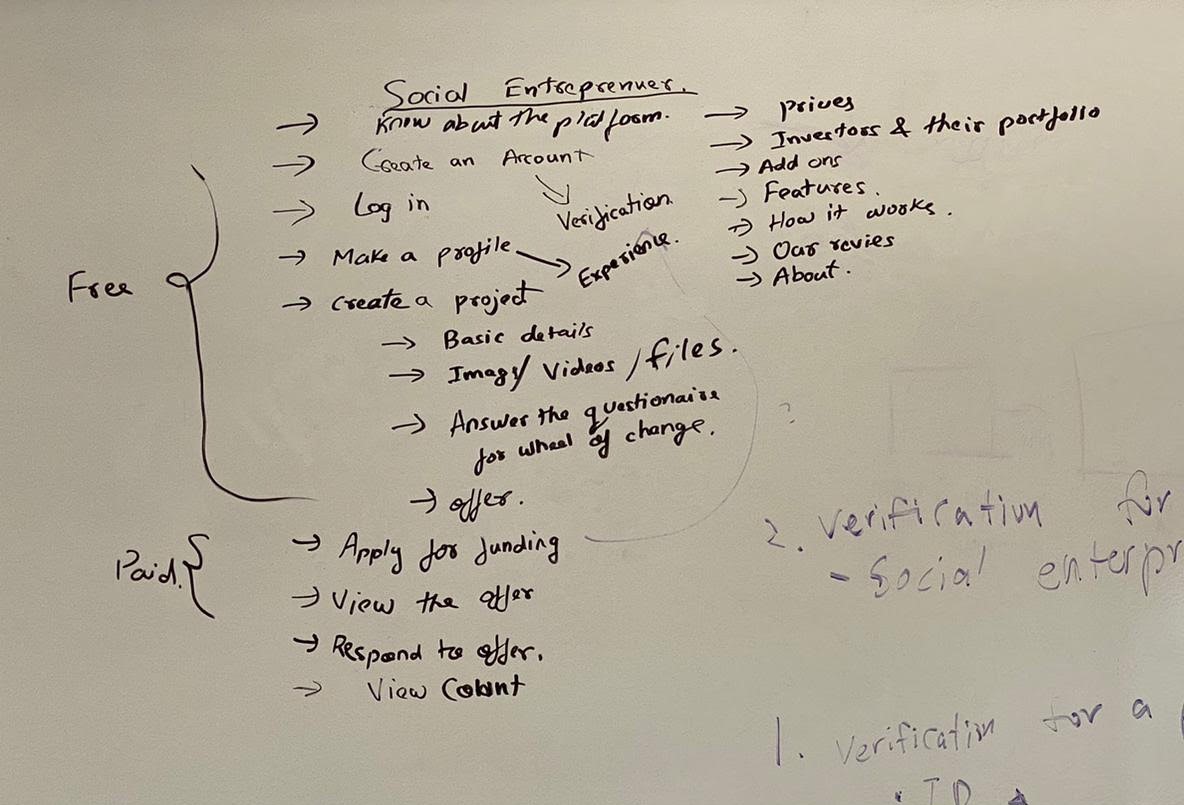 Social Entreprenuer.
→ Know about the platform.
→ prives
→ Investors & their portfolio
→ Add ons
→ Features.
→ How it works.
→ Our revies
→ About.
→ Create an Account
Verification
→ Log in
→ Make a profile → Experience.
→ Create a project
→ Basic details
→ Image/ Videos / files.
→ Answer the questionaire
for wheel of change.
→ offer.
Free
→ Apply for funding
→ View the offer
Paid.
→ Respond to offer.
→ View Count
?
2. Verification for
- Social enterpr
1. Verification for a
· ID